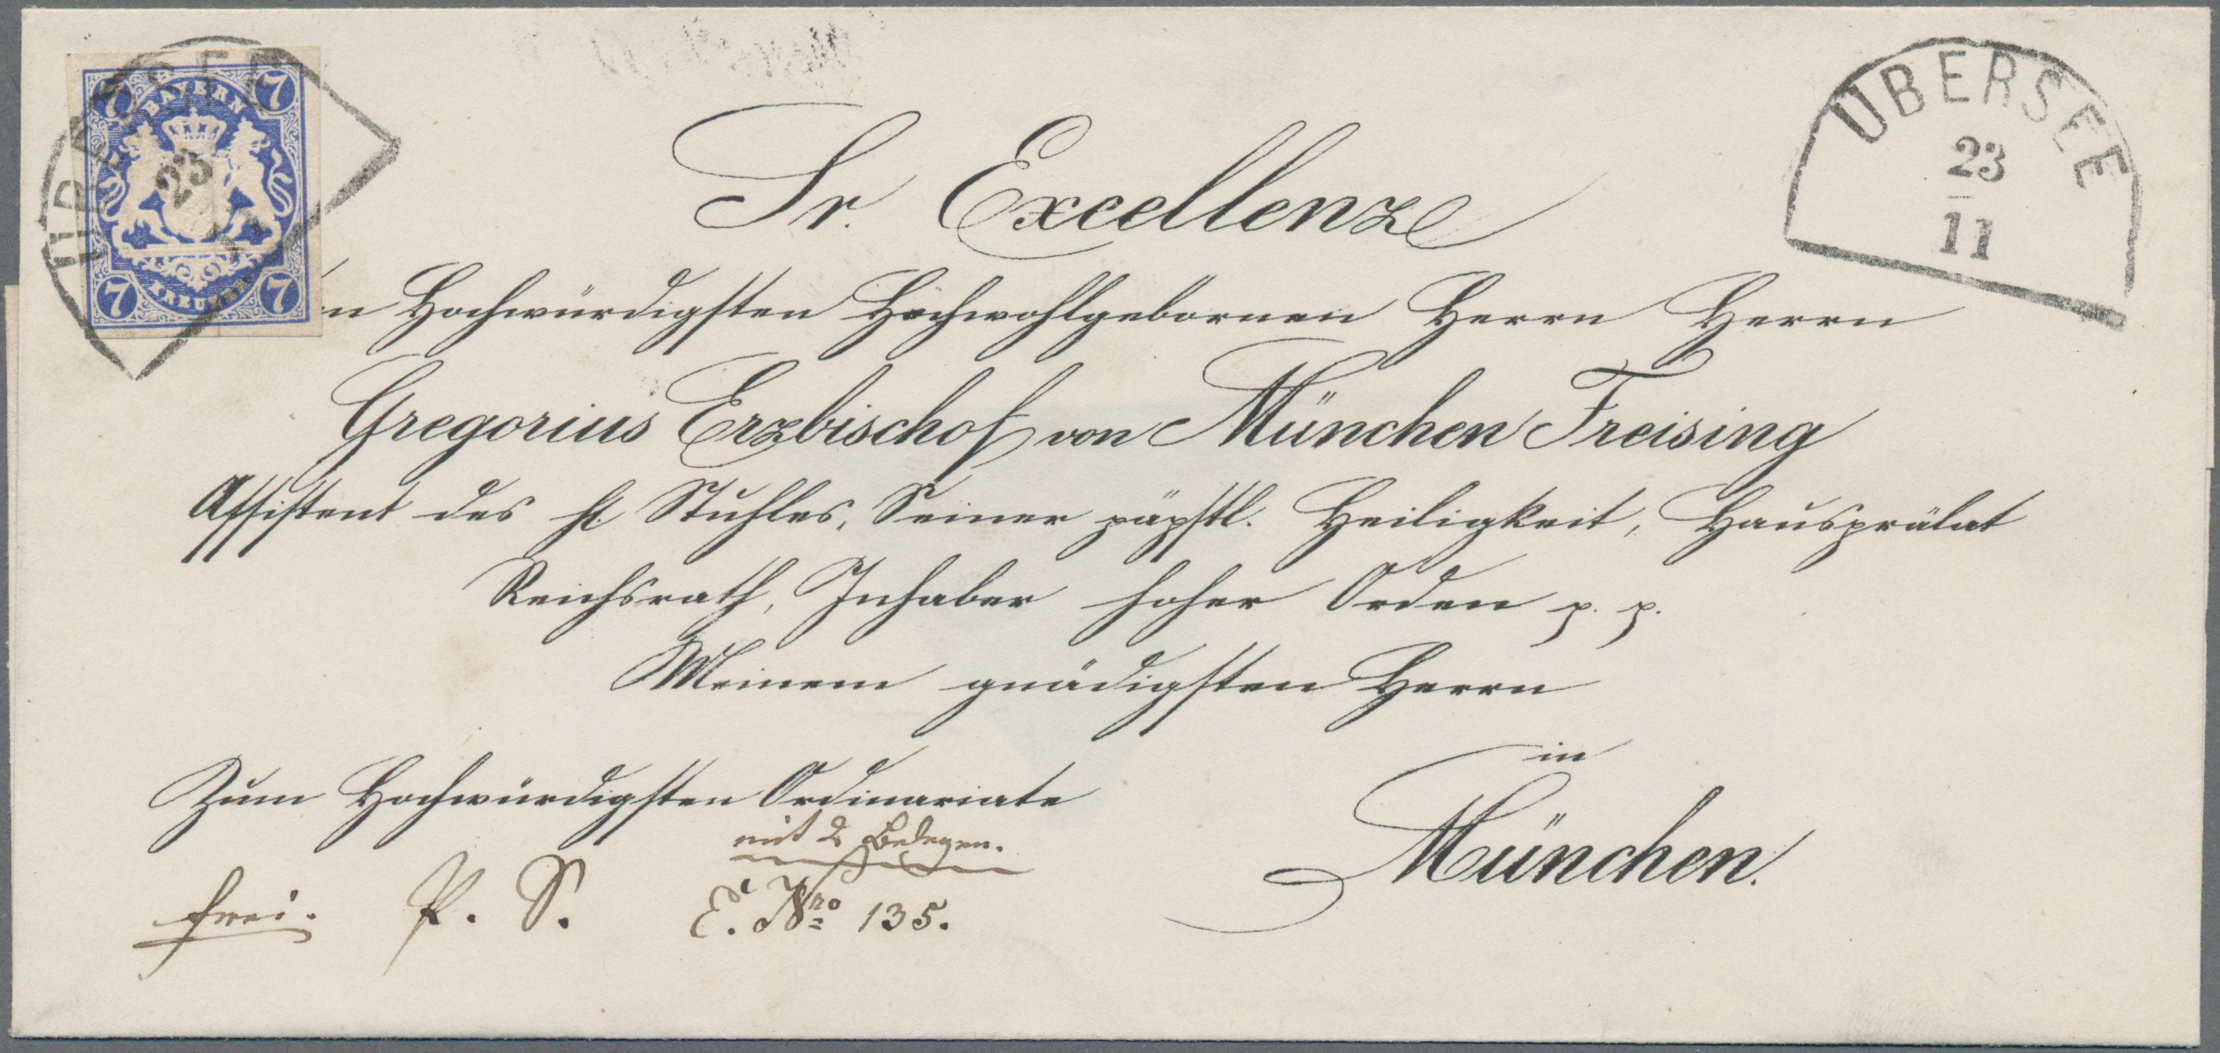 7 BAYERN 7
7 KREUZER 7
ÜBERSEE
23
11
ÜBERSEE
23
11
Sr. Excellenz
n Hochwürdigsten Hochwohlgebornen Herrn Herrn
Gregorius Erzbischof von München Freising
Assistent des hl. Stuhles, Seiner päpstl. Heiligkeit, Hausprälat
Reichsrath, Inhaber hoher Orden p. p.
Meinem gnädigsten Herrn
in
München.
Zum Hochwürdigsten Ordinariate
mit 2 Belegen.
frei. P. S. E. Nro 135.